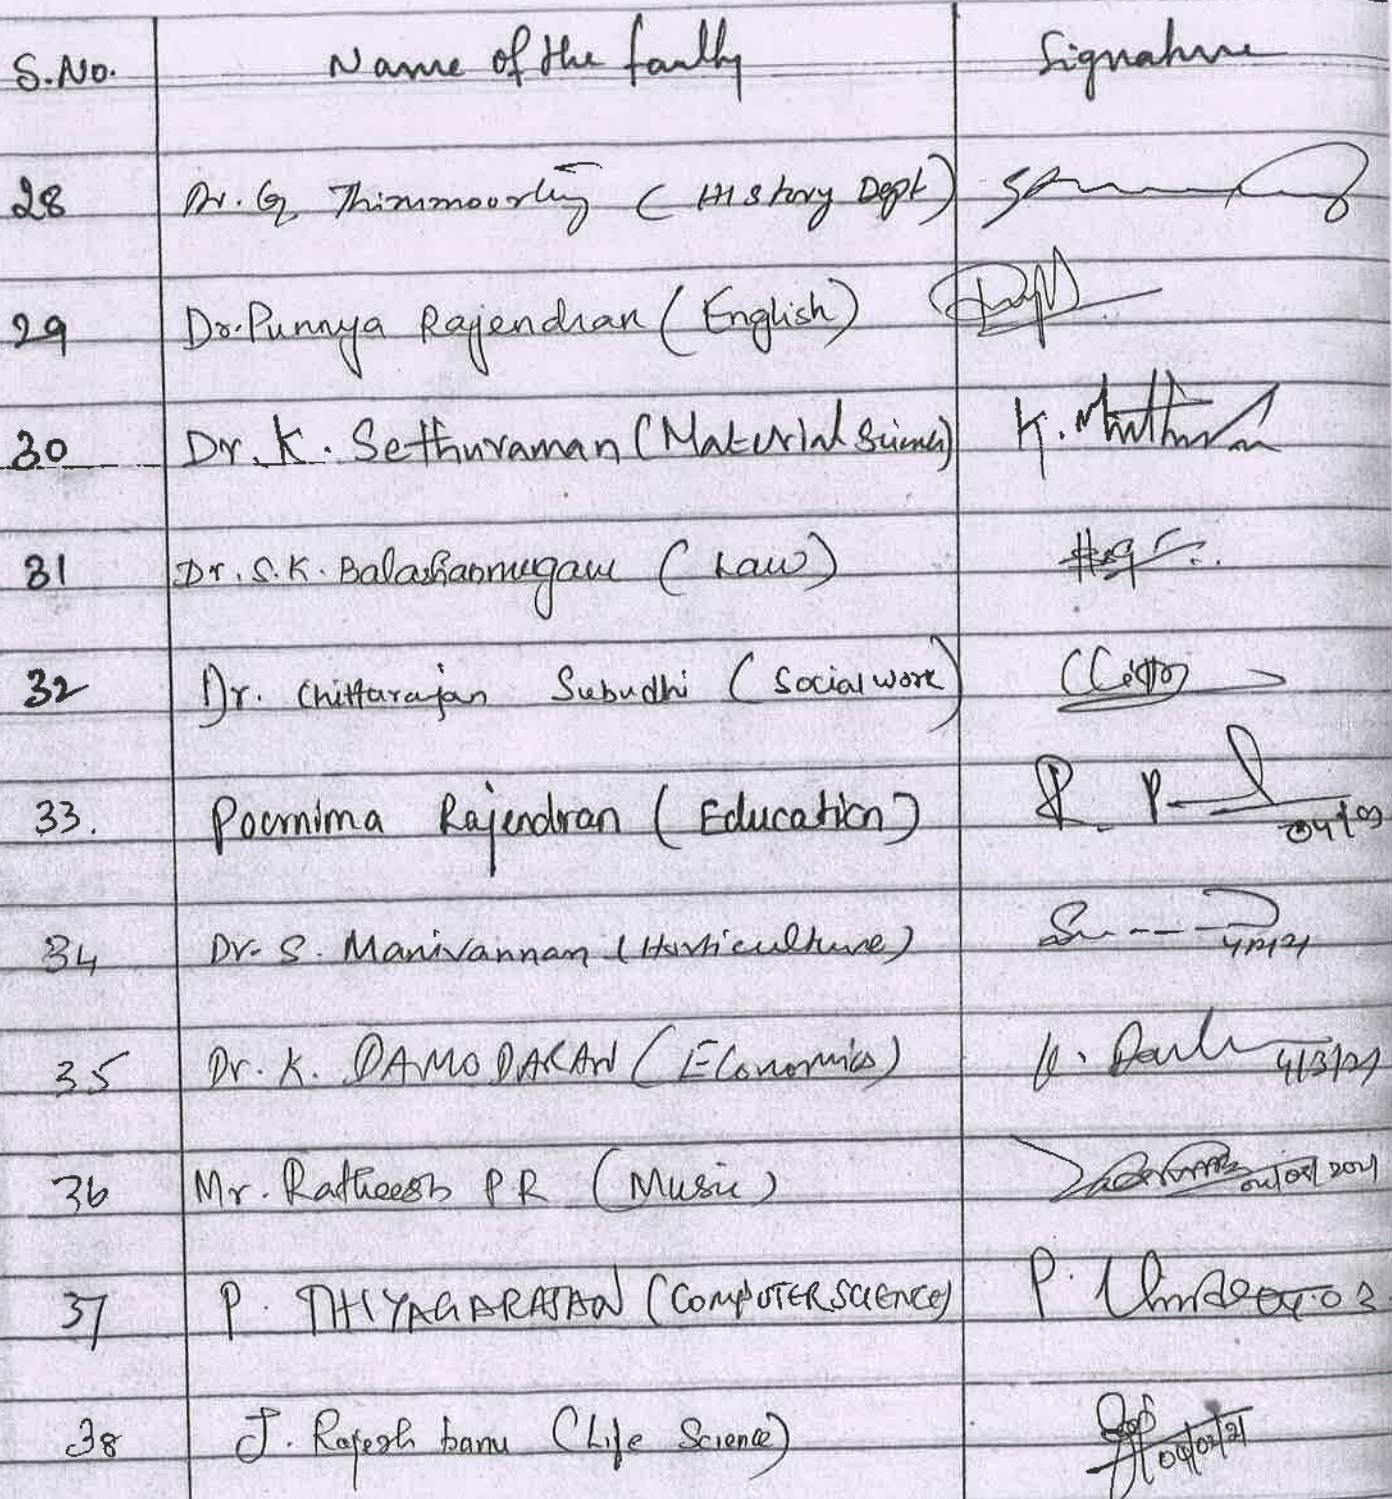 S.No. Name of the faulty Signature
28 Dr. G Thirumoorthy (History Dept)
29 Dr. Punnya Rajendran (English)
30 Dr. K. Sethuraman (Material Science)
31 Dr. S.K. Balashanmugam (Law)
32 Dr. Chittaranjan Subudhi (Social work)
33. Poornima Rajendran (Education) R. P
34 Dr. S. Manivannan (Horticulture)
35 Dr. K. DAMODARAN (Economics) 4/3/21
36 Mr. Ratheesh PR (Music) 04/03/2021
37 P. THIYAGARAJAN (COMPUTER SCIENCE) P. 04.03
38 J. Rajesh banu (Life Science)